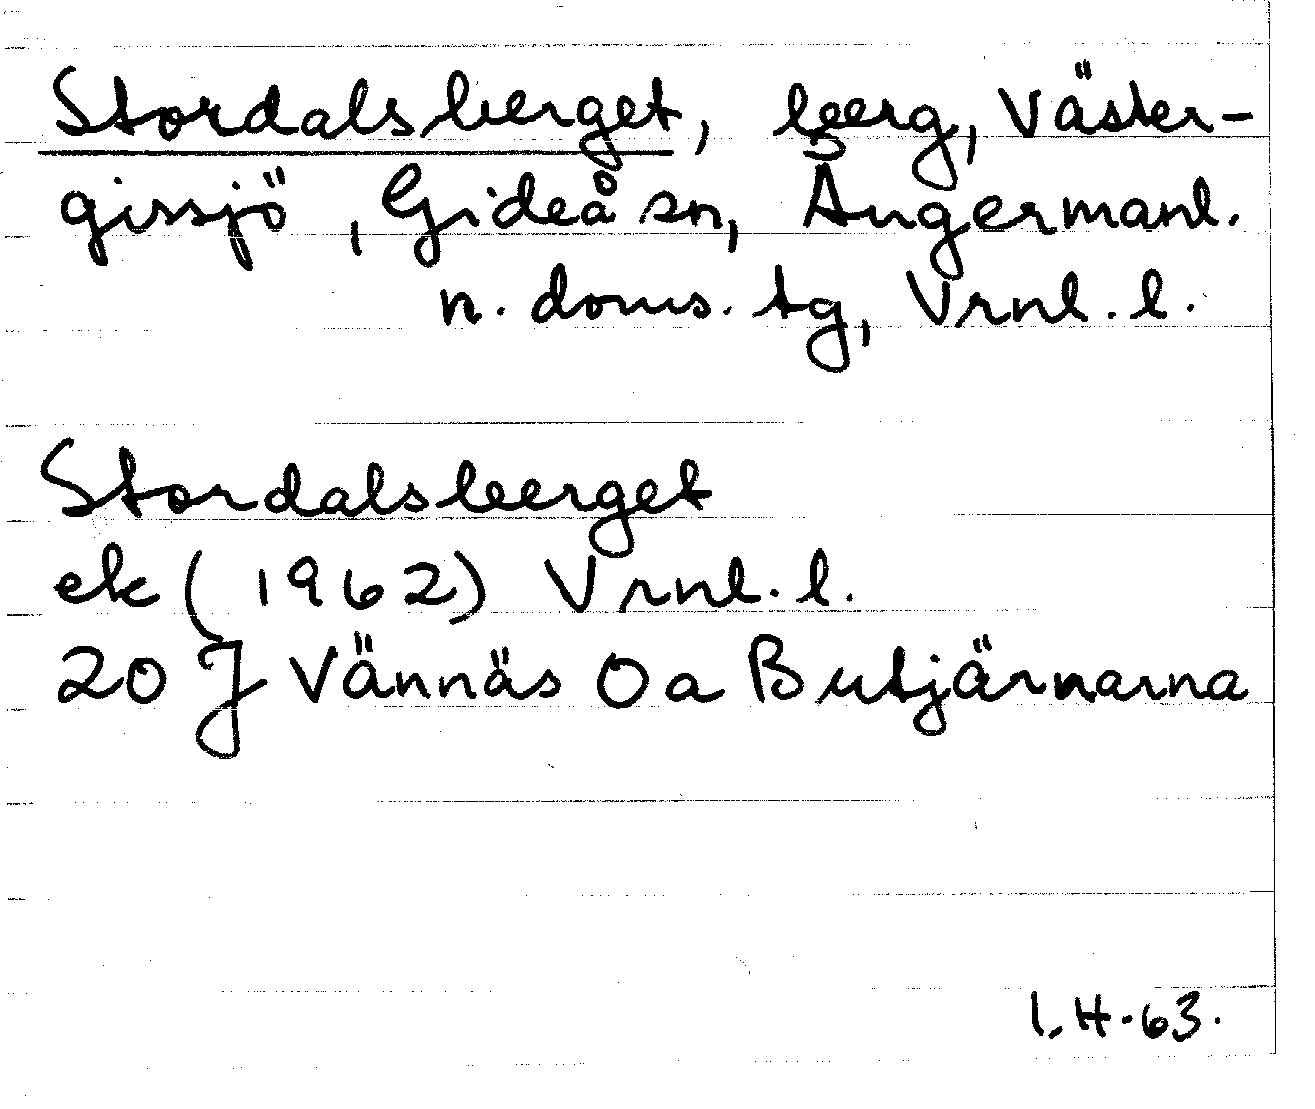 Stordalsberget, berg, Väster-
gissjö, Gideå sn, Ångermanl.
n. doms. tg, Vrnl. l.
Stordalsberget
ek (1962) Vrnl. l.
20 J Vännäs O a Butjärnarna
I. H. 63.